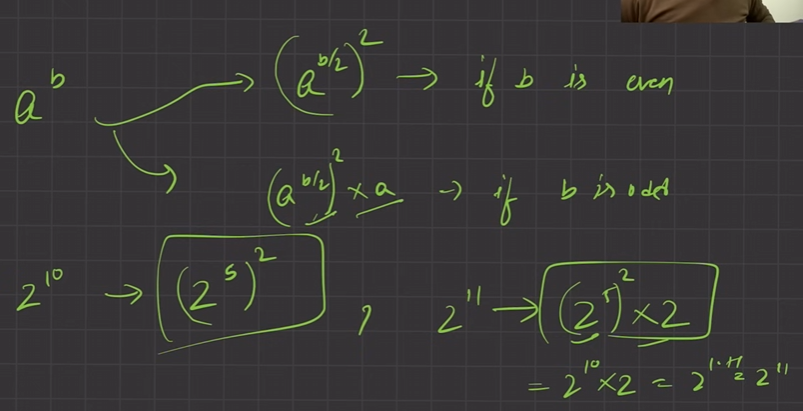 a^b → (a^{b/2})^2 → if b is even
(a^{b/2})^2 × a → if b is odd
2^{10} → (2^5)^2 , 2^{11} → (2^5)^2 × 2
= 2^{10} × 2 = 2^{10+1} = 2^{11}